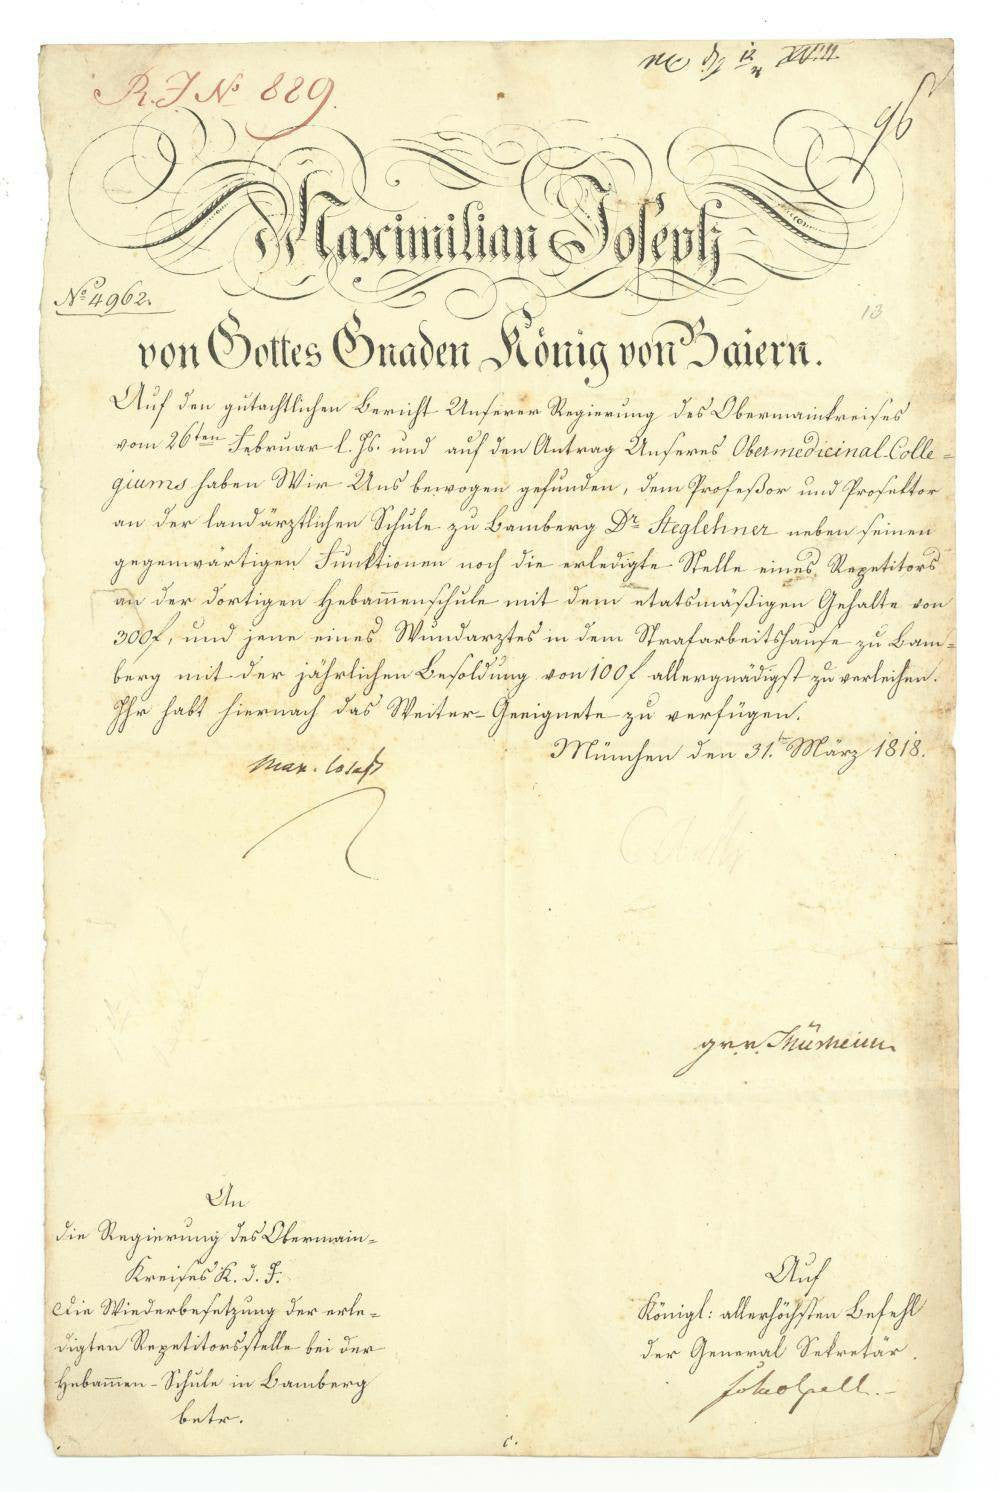 R. I. No. 889.
96
Maximilian Joseph
No. 4962.
13
von Gottes Gnaden König von Baiern.
Auf den gutachtlichen Bericht Unserer Regierung des Obermainkreises
vom 26ten Februar l. Js. und auf den Antrag Unseres Obermedicinal-Colle=
giums haben Wir Uns bewogen gefunden, dem Profeßor und Prosektor
an der landärztlichen Schule zu Bamberg Dr. Steglehner neben seinen
gegenwärtigen Funktionen noch die erledigte Stelle eines Repetitors
an der dortigen Hebam̄enschule mit dem etatsmäßigen Gehalte von
300f, und jene eines Wundarztes in dem Strafarbeitshause zu Bam=
berg mit der jährlichen Besoldung von 100f allergnädigst zu verleihen.
Ihr habt hiernach das Weiter-Geeignete zu verfügen.
München den 31.ten März 1818.
Max. Joseph
gr. v. Thürheim
An
die Regierung des Obermain=
Kreises K. d. I.
Die Wiederbesetzung der erle=
digten Repetitorsstelle bei der
Hebam̄en-Schule in Bamberg
betr.
Auf
Königl: allerhöchsten Befehl
der General Sekretär.
c.